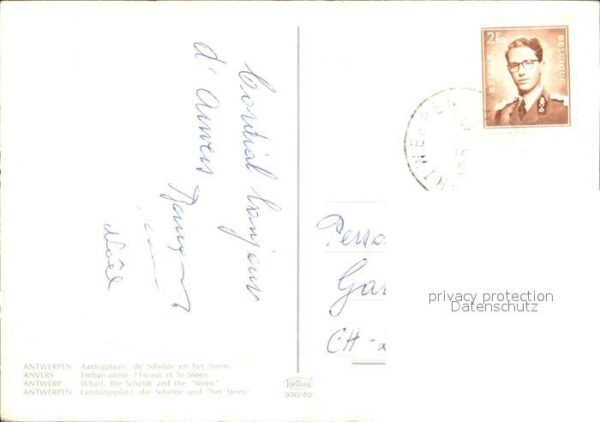 Cordial bonjour
d'Anvers
Noël
ANTWERPEN Aanlegplaats, de Schelde en het Steen
ANVERS Embarcadère, l'Escaut et le Steen
ANTWERP Wharf, the Scheldt and the "Steen"
ANTWERPEN Landungsplatz, die Schelde und "het Steen"
930/40
2F
BELGIQUE
ANTWERPEN
Perso
Gar
CH-
privacy protection
Datenschutz